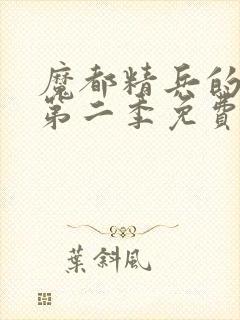 魔都精兵的
第二季免費
葉斜風